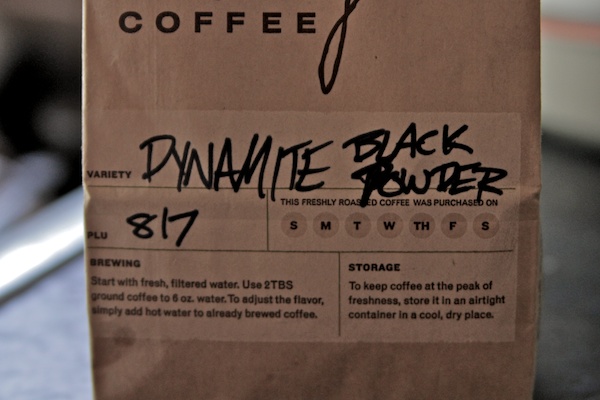 COFFEE
VARIETY DYNAMITE BLACK POWDER
THIS FRESHLY ROASTED COFFEE WAS PURCHASED ON
PLU 817
S M T W TH F S
BREWING
Start with fresh, filtered water. Use 2TBS
ground coffee to 6 oz. water. To adjust the flavor,
simply add hot water to already brewed coffee.
STORAGE
To keep coffee at the peak of
freshness, store it in an airtight
container in a cool, dry place.